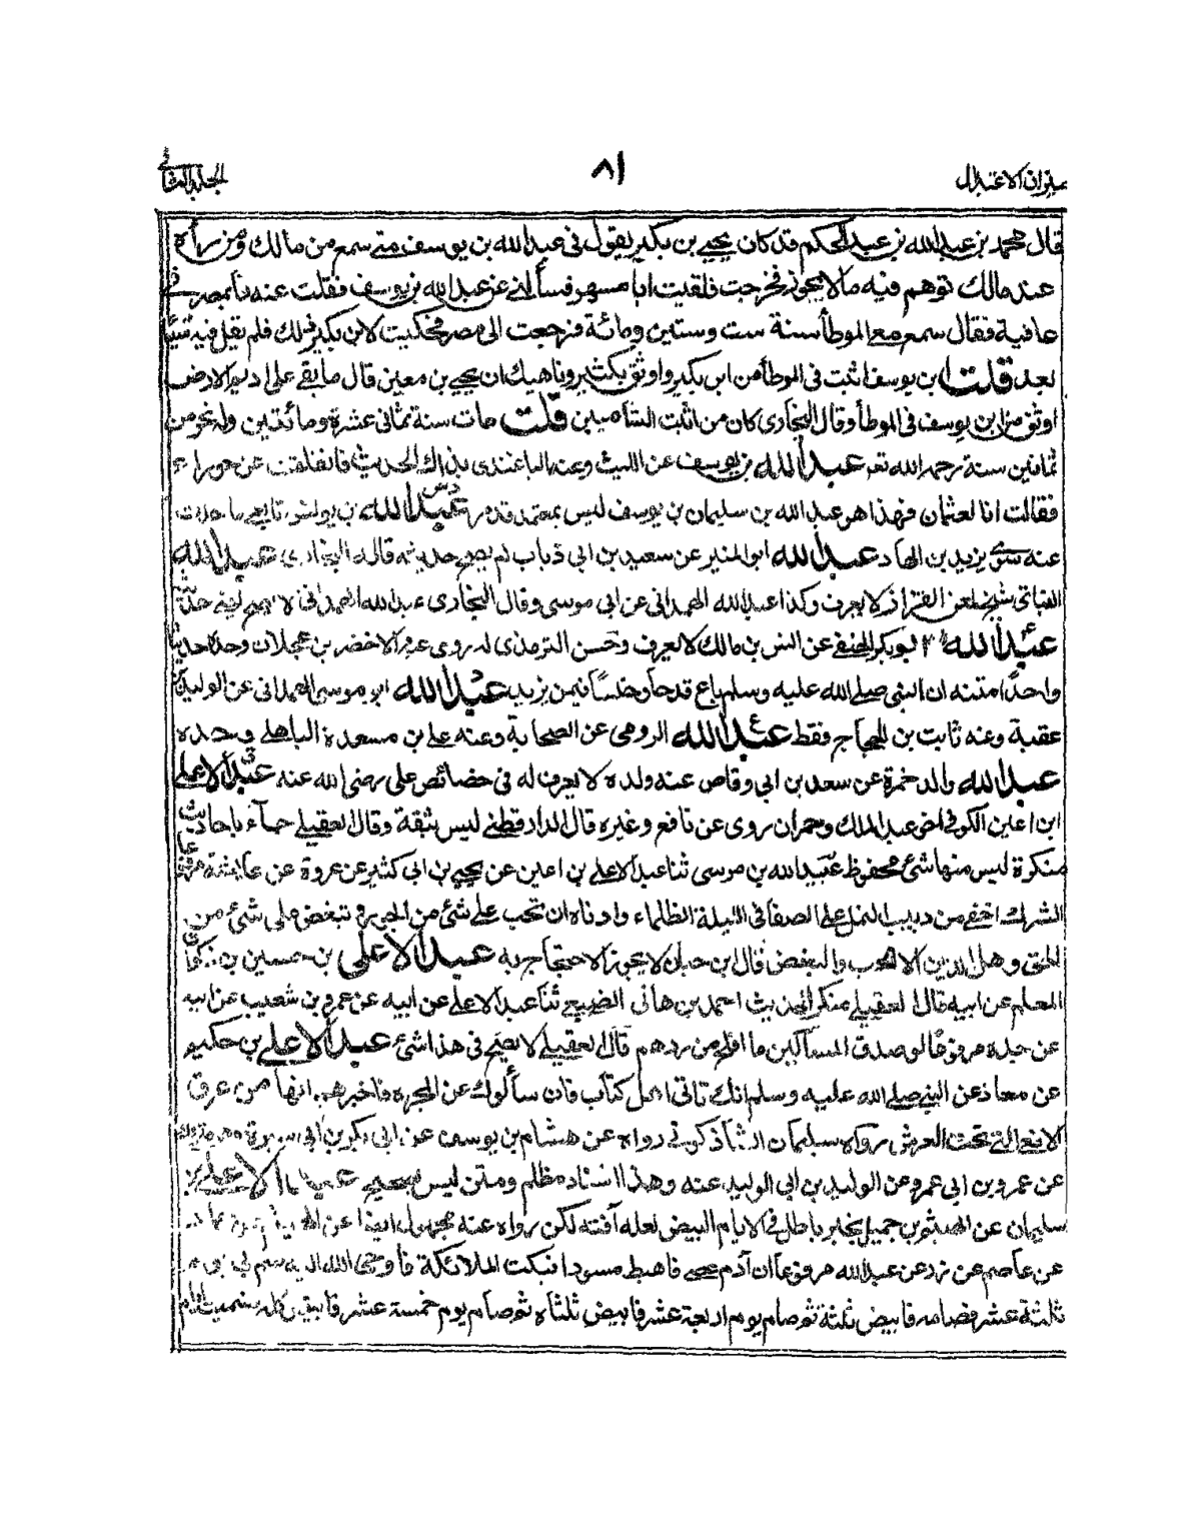 ميزان الاعتدال
٨١
الجلد الثاني
قال محمد بن عبد الله بن عبد الحكم قد كان يحيى بن بكير يقول في عبد الله بن يوسف متى سمع من مالك ومن رأه
عند مالك توهم فيه ما لا يجوز فخرجت فلقيت ابا مسهر فسألني عن عبد الله بن يوسف فقلت عندنا بمصر في
عافية فقال سمع معي الموطأ سنة ست وستين ومائة فرجعت الى مصر فحكيت لابن بكير ذلك فلم يقل فيه شيئا
بعد قلت ابن يوسف اثبت في الموطأ من ابن بكير واوثق بكثير وناهيك ان يحيى بن معين قال ما بقي على اديم الارض
اوثق من ابن يوسف في الموطأ وقال البخاري كان من اثبت الشاميين قلت مات سنة ثماني عشرة ومائتين وله نحو من
ثمانين سنة رحمه الله نعم عبد الله بن يوسف عن الليث وعنه الباغندي بذاك الحديث فانفلقت عن حوراء
فقالت انا لعثمان فهذا هو عبد الله بن سليمان بن يوسف ليس بمعتمد قد مر عبد الله بن يونس تابعي ما حدث
عنه سوى يزيد بن الهاد عبد الله ابو المنير عن سعيد بن ابي ذباب لم يصح حديثه قاله البخاري عبد الله
شيخ لا يعرف وكذا عبد الله الهمداني عن ابي موسى وقال البخاري عبد الله الهمداني لا يصح حديثه
عبد الله ابو بكر الحنفي عن انس بن مالك لا يعرف وحسن الترمذي له روى عنه الاخضر بن عجلان وحده حديثا
واحدًا متنه ان النبي صلى الله عليه وسلم باع قدحا وحلسًا فيمن يزيد عبد الله ابو موسى الهمداني عن الوليد بن
عقبة وعنه ثابت بن الحجاج فقط عبد الله الرومي عن الصحابة وعنه علي بن مسعدة الباهلي وحده
عبد الله والد حمزة عن سعد بن ابي وقاص عنه ولده لا يعرف له في خصائص علي رضي الله عنه عبد الاعلى
ابن اعين الكوفي اخو عبد الملك وحمران روى عن نافع وغيره قال الدارقطني ليس بثقة وقال العقيلي جآء باحاديث
منكرة ليس منها شئ محفوظ عبيد الله بن موسى ثنا عبد الاعلى بن اعين عن يحيى بن ابي كثير عن عروة عن عايشة مرفوعا
الشرك اخفى من دبيب النمل على الصفا في الليلة الظلماء وادناه ان تحب على شئ من الجور وتبغض على شئ من
الحق وهل الدين الا الحب والبغض قال ابن حبان لا يجوز الاحتجاج به عبد الاعلى بن حسين بن ذكوان
المعلم عن ابيه قال العقيلي منكر الحديث احمد بن هاني الضبيعي ثنا عبد الاعلى عن ابيه عن عمرو بن شعيب عن ابيه
عن جده مرفوعًا لو صدق المسآكين ما افلح من ردهم قال العقيلي لا يصح في هذا شئ عبد الاعلى بن حكيم
عن معاذ عن النبي صلى الله عليه وسلم انك تاتي اهل كتاب فان سألوك عن المجره فاخبرهم انها من عرق
الافعى التي تحت العرش رواه سليمان الشاذكوني رواه عن هشام بن يوسف عن ابي بكر بن ابي سبرة
عن عمرو بن ابي عمرو عن الوليد بن ابي الوليد عنه وهذا اسناد مظلم ومتن ليس بصحيح عبد الاعلى بن
سليمان عن الهيثم بن جميل بخبر باطل في الايام البيض لعله آفته لكن رواه عنه مجهول ايضا عن الهيثم عن حماد
عن عاصم عن زر عن عبد الله مرفوعاً ان آدم عصى فاهبط مسودا فبكت الملائكة فاوحى الله اليه صم لي يوم
ثلثة عشر فصامه فابيض ثلثة ثم صام يوم اربعة عشر فابيض ثلثاه ثم صام يوم خمسة عشر فابيض كله فسميت ايام